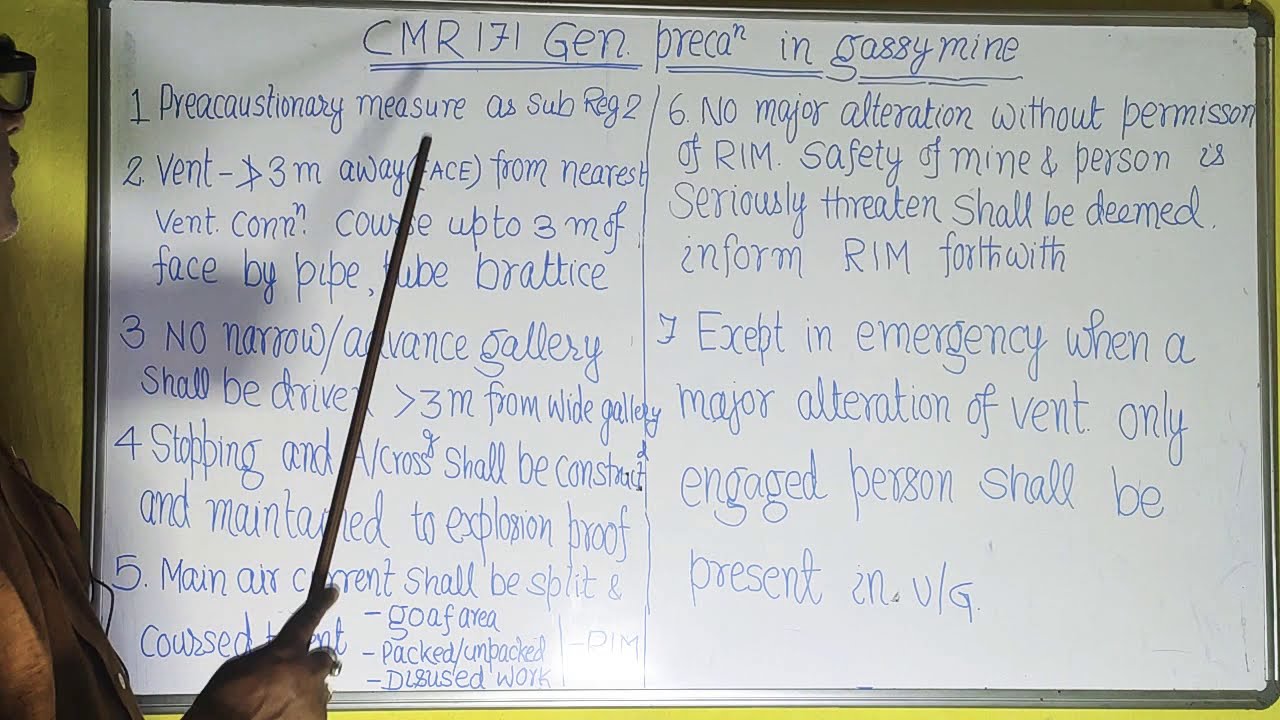 CMR 171 Gen. precaⁿ in gassymine
1 Preacaustionary measure as sub Reg 2
2. Vent - ≯ 3 m away (FACE) from nearest
Vent. Connⁿ. course upto 3 m of
face by pipe, tube brattice
3 NO narrow/advance gallery
Shall be driven >3m from wide gallery
4 Stopping and A/crossᵍ shall be constructᵈ
and maintained to explosion proof
5. Main air current shall be split &
coursed
- goaf area
- Packed/unpacked
- Disused work
6. NO major alteration without permisson
of RIM. Safety of mine & person is
Seriously threaten shall be deemed.
inform RIM forthwith
7 Exept in emergency when a
major alteration of vent. only
engaged person shall be
present in U/G.